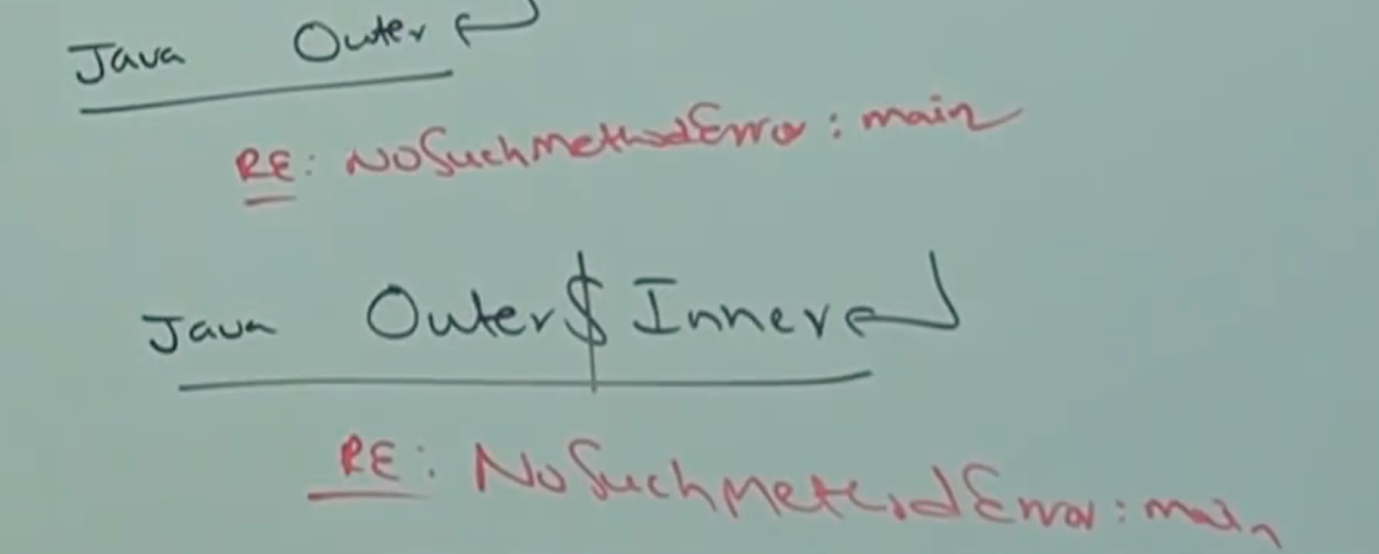 Java Outer ↵
RE: NoSuchMethodError: main
Java Outer$Inner ↵
RE: NoSuchMethodError: main